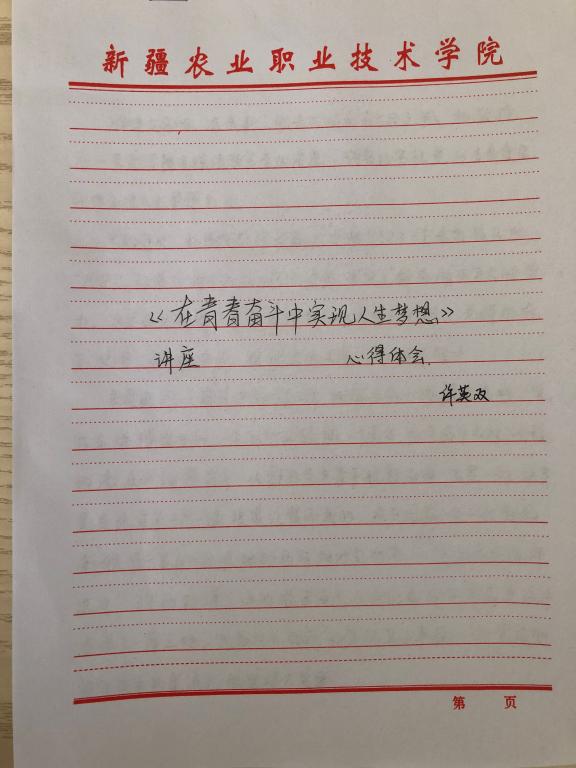 新疆农业职业技术学院
《在青春奋斗中实现人生梦想》
讲座 心得体会.
许英双
第 页